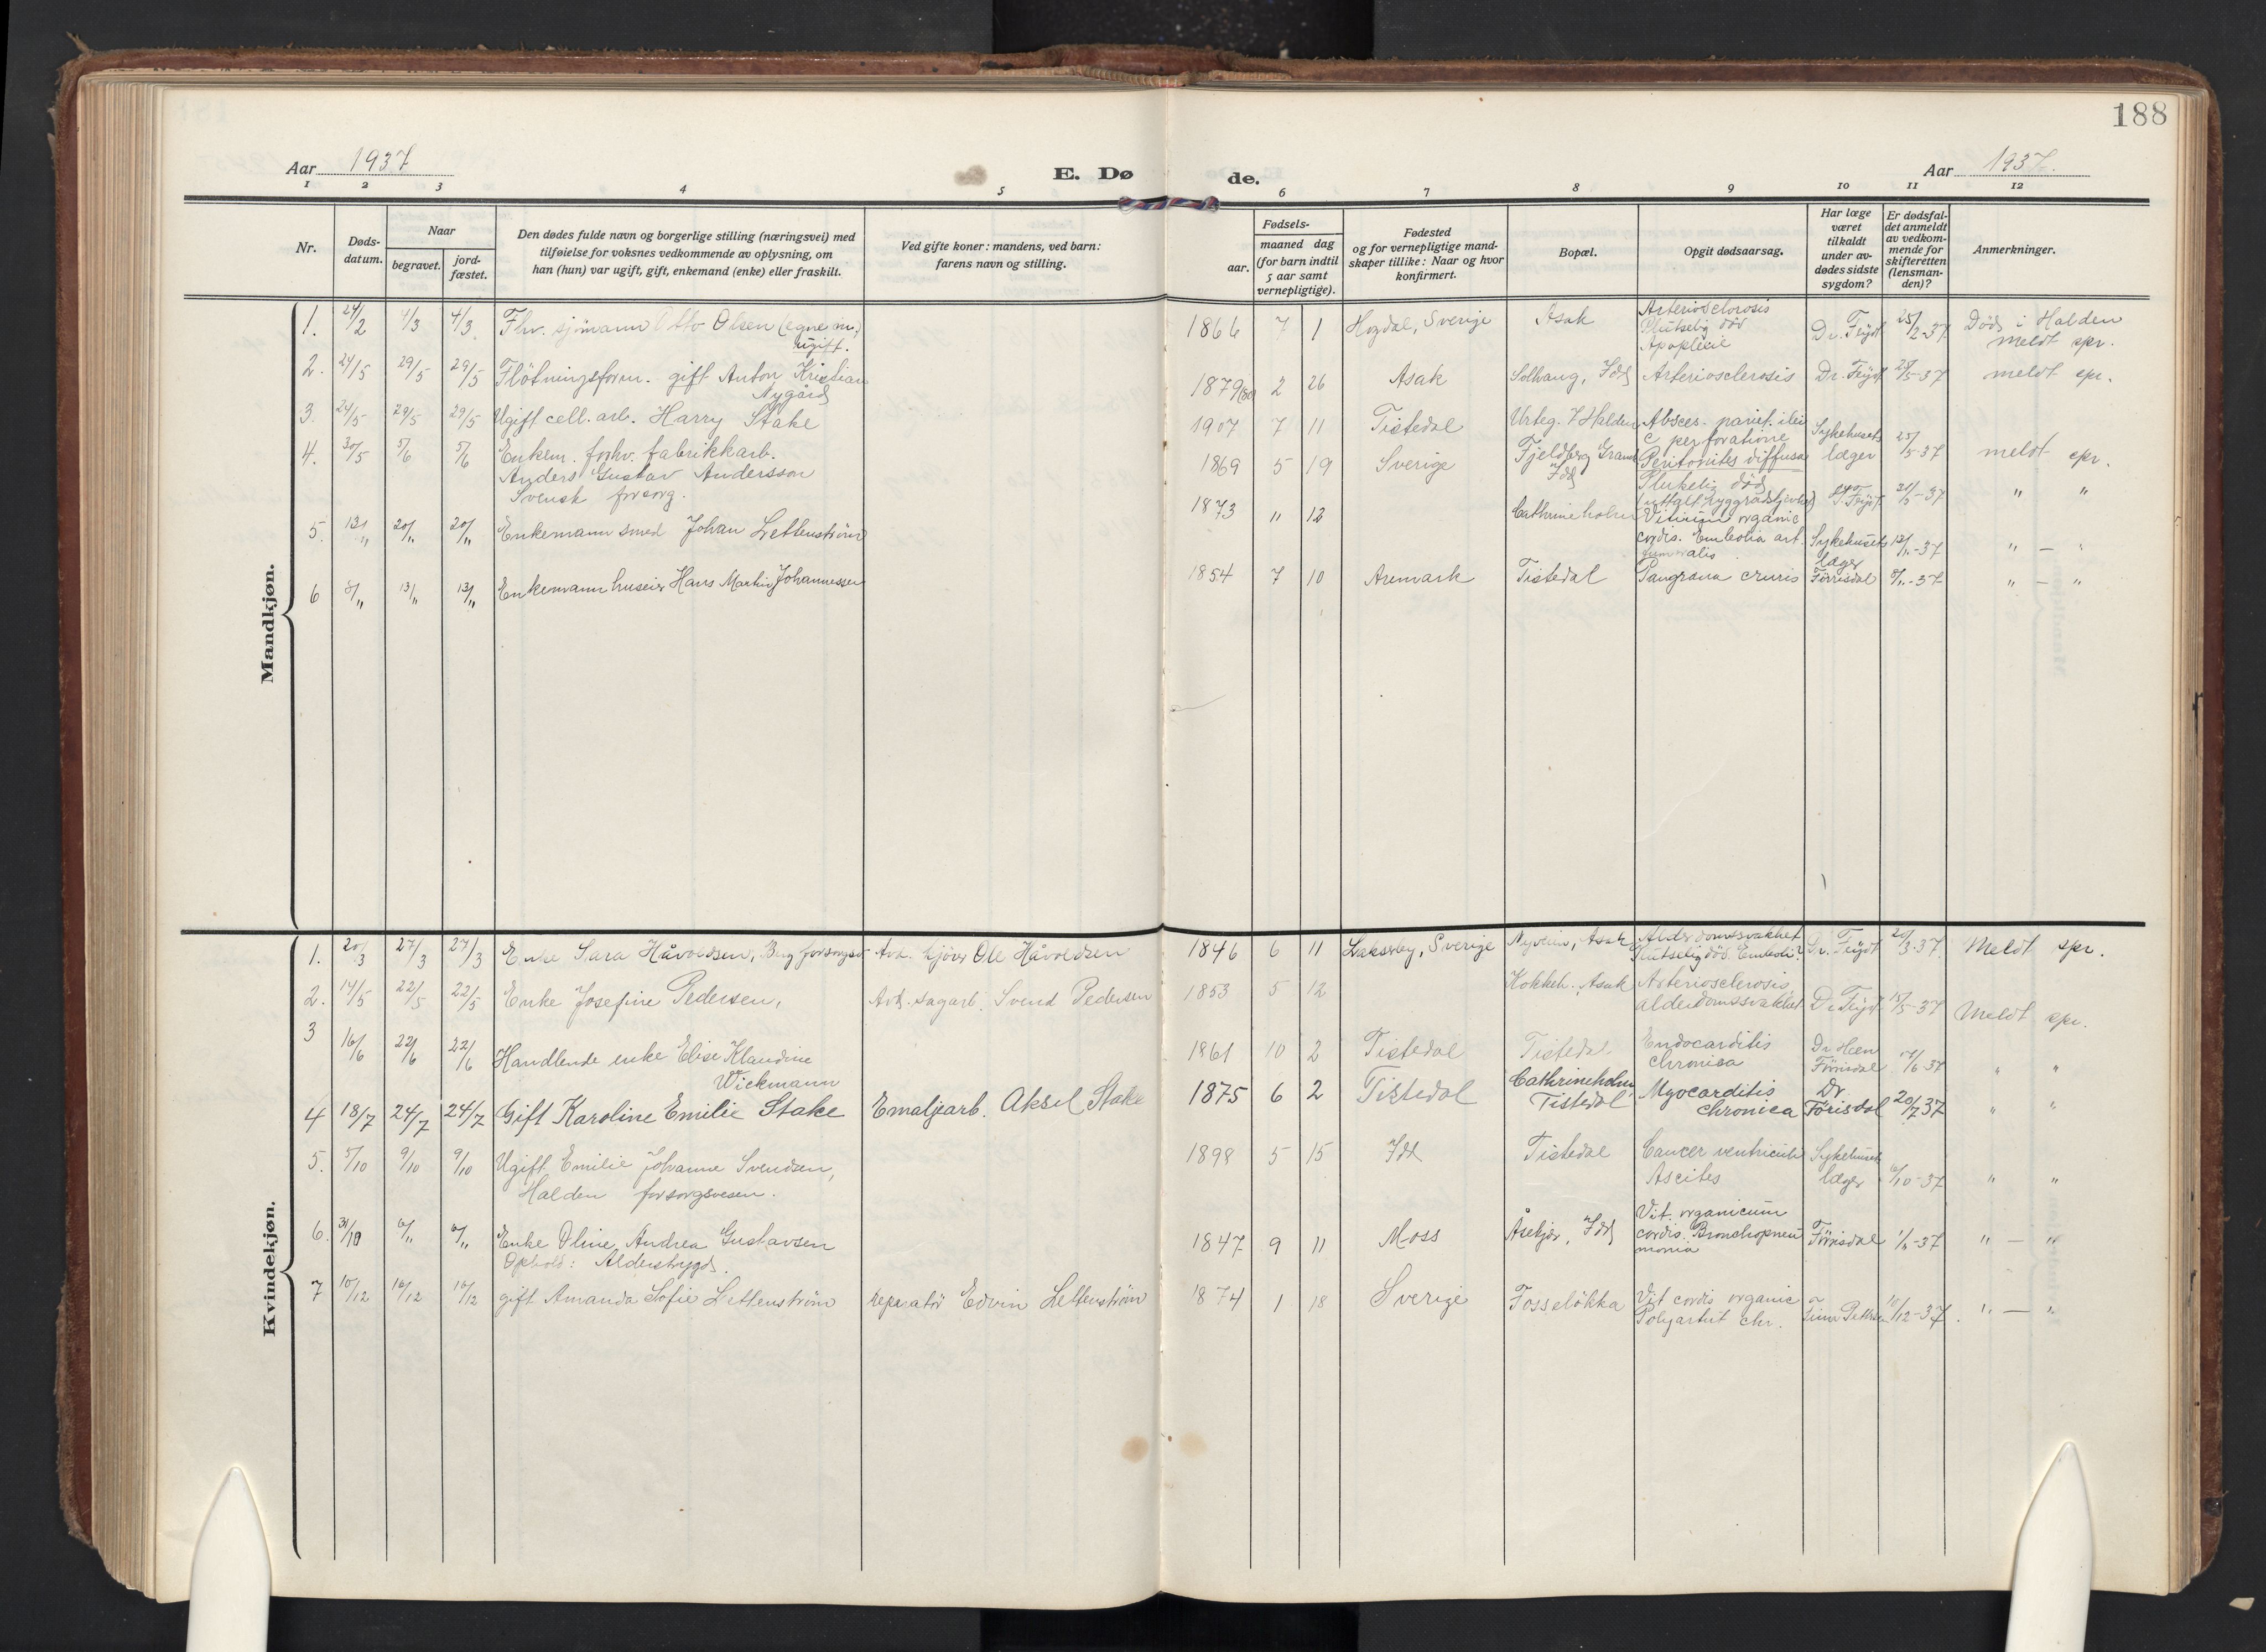 188
Aar 1937
E. Dø de.
Aar 1937.
1 2 3 4 5 6 7 8 9 10 11 12
Nr.
Døds-
datum.
Naar
begravet.
jord-
fæstet.
Den dødes fulde navn og borgerlige stilling (næringsvei) med
tilføielse for voksnes vedkommende av oplysning, om
han (hun) var ugift, gift, enkemand (enke) eller fraskilt.
Ved gifte koner: mandens, ved barn:
farens navn og stilling.
Fødsels-
aar.
maaned dag
(for barn indtil
5 aar samt
vernepligtige).
Fødested
og for vernepligtige mand-
skaper tillike: Naar og hvor
konfirmert.
Bopæl.
Opgit dødsaarsag.
Har læge
været
tilkaldt
under av-
dødes sidste
sygdom?
Er dødsfal-
det anmeldt
av vedkom-
mende for
skifteretten
(lensman-
den)?
Anmerkninger.
Mandkjøn.
1. 24/2 4/3 4/3 Fhv. sjömann Otto Olsen (egne m.)
ugift.
1866 7 1 Hogdal, Sverige Asak Arteriosclorosis
Plutselig död
Apoplexie
Dr. Feijdt 25/2-37 Död i Halden
meldt spr.
2. 24/5 29/5 29/5 Flötningsform. gift Anton Kristian
Nygård
1879(80) 2 26 Asak Solhaug, Idd Arteriosclerosis Dr. Feijdt 25/5-37 meldt spr.
3. 24/5 29/5 29/5 Ugift cell. arb. Harry Stake
1907 7 11 Tistedal Urteg. 7 Halden Absces. pariet. ilei
c perforatione
Peritonites diffusa
Sykehusets
læger
25/5-37 meldt spr.
4. 30/5 5/6 5/6 Enkem. forhv. fabrikkarb.
Anders Gustav Andersson
Svensk forsorg.
1869 5 19 Sverige Fjeldberg
Idd
död
Feijdt 31/5-37 " "
5. 13/11 20/11 20/11 Enkemann smed Johan Lettenström
1873 " 12 Cathrineholm organic
cordis. Embolia art.
Sykehusets
læger
13/11-37 " — "
6 8/11 13/11 13/11 Enkemann huseier Hans Martin Johannessen
1854 7 10 Aremark Tistedal Gangræna cruris Förrisdal 9/11-37 " — "
Kvindekjøn.
1. 20/3 27/3 27/3 Enke Sara Håvoldsen, Ole Håvoldsen
1846 6 11 Sverige Asak Alderdomssvakhet
Plutselig död. Emboli?
Dr. Feijdt 20/3-37 Meldt spr.
2. 14/5 22/5 22/5 Enke Josefine Pedersen, Avd. sagarb. Svend Pedersen
1853 5 12 Kokkeh. Asak Arteriosclerosis,
alderdomssvakhet
Dr Feijdt 15/5-37 Meldt spr.
3 16/6 22/6 22/6 Handlende enke Elise Klaudine
Wickmann
1861 10 2 Tistedal Tistedal Endocarditis
chronica
Dr Heen
Förrisdal
17/6 37 " "
4 18/7 24/7 24/7 Gift Karoline Emilie Stake Emaljearb. Aksel Stake
1875 6 2 Tistedal Cathrineholm,
Tistedal
Myocarditis
chronica
Dr
Förisdal
20/7 37 " "
5. 5/10 9/10 9/10 Ugift Emilie Johanne Svendsen,
Halden forsorgsvesen.
1898 5 15 Idd Tistedal Cancer ventriculi
Ascites
Sykehusets
læger
6/10-37 " "
6. 31/10 6/11 6/11 Enke Oline Andrea Gustavsen
Ophold: Alderstrygd.
1847 9 11 Moss Åsekjær, Idd Vit. organicum
cordis. Bronchopneu
monia
Förrisdal 1/11-37 " — "
7 10/12 16/12 16/12 gift Amanda Sofie Lettenström reparatör Edvin Lettenström
1874 1 18 Sverige Fosselökka Vit cordis organic
Polyartrit chr.
10/12-37. " — "